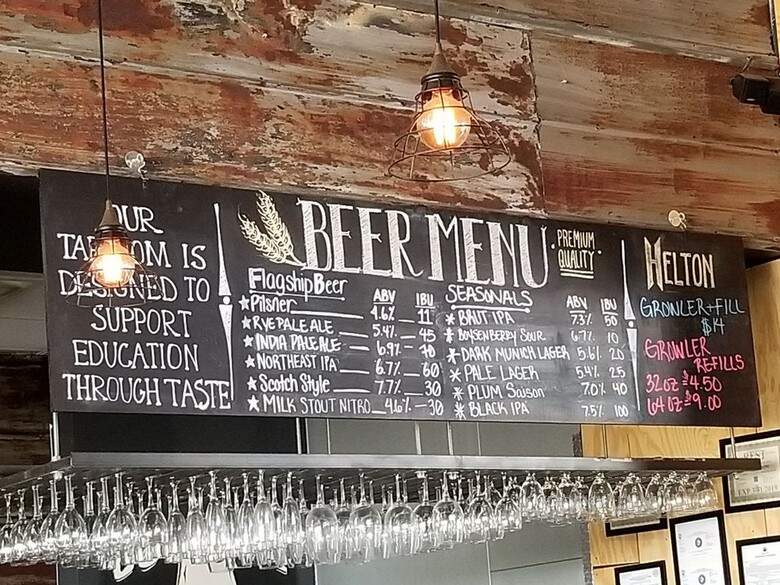 OUR
TAPROOM IS
DESIGNED TO
SUPPORT
EDUCATION
THROUGH TASTE
BEER MENU
PREMIUM
QUALITY
Flagship Beer ABV IBU
★ Pilsner 4.6% 11
★ RYE PALE ALE 5.4% 45
★ INDIA PALE ALE 6.9% 70
★ NORTHEAST IPA 6.7% 60
★ Scotch Style 7.7% 30
★ MILK STOUT NITRO 4.6% 30
SEASONALS ABV IBU
* BRUT IPA 7.3% 50
* BOYSENBERRY SOUR 6.7% 10
* DARK MUNICH LAGER 5.6% 20
* PALE LAGER 5.4% 25
* PLUM Saison 7.0% 40
* BLACK IPA 7.5% 100
HELTON
GROWLER + FILL
$14
GROWLER
REFILLS
32oz $4.50
64oz $9.00
BEST